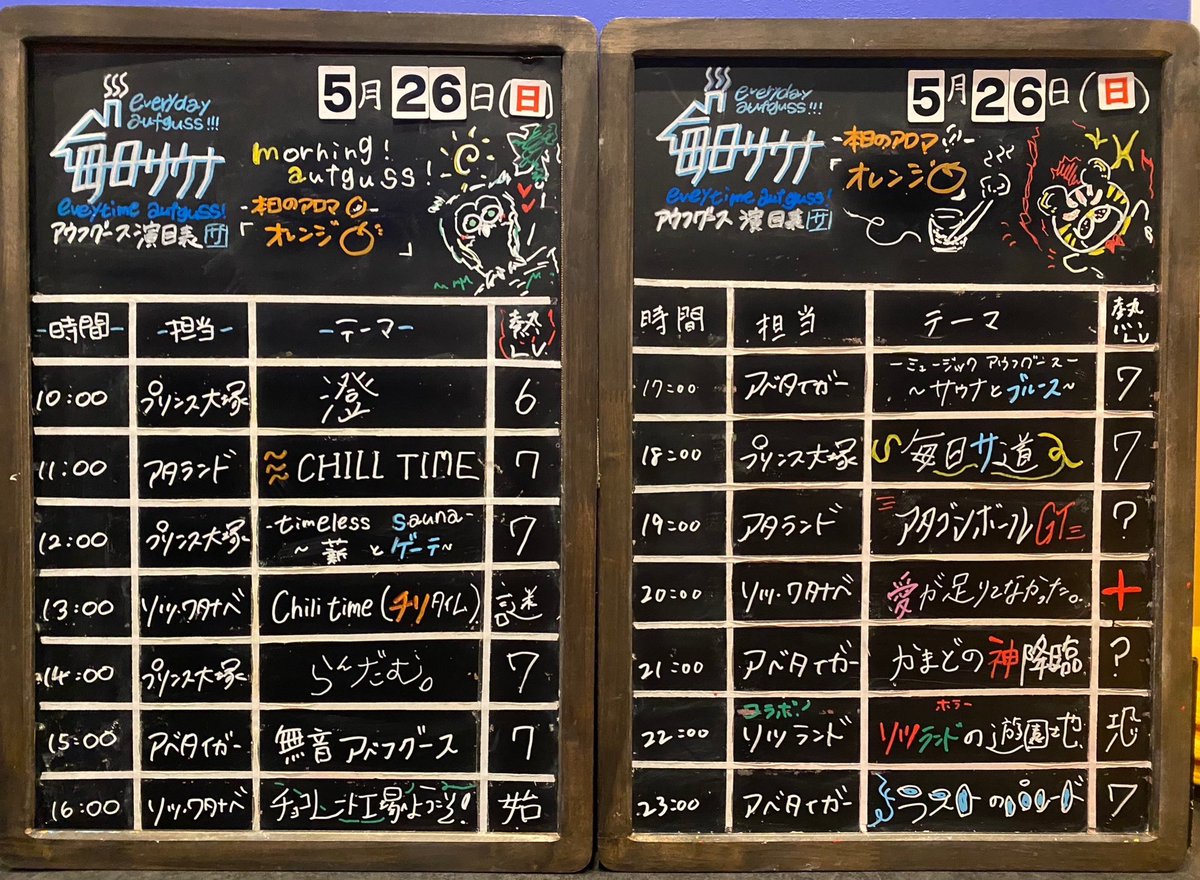 everyday
aufguss!!!
毎日サウナ
everytime aufguss!
アウフグース 演目表 サ
5月26日(日)
morning!
autguss!
-本日のアロマ-
「オレンジ」
-時間- -担当- -テーマ- 熱LV.
10:00 プリンス大塚 澄 6
11:00 アタランド CHILL TIME 7
12:00 プリンス大塚 -timeless sauna-
~薪とゲーテ~ 7
13:00 ソッソ・ワタナベ Chili time (チリタイム) 謎
14:00 プリンス大塚 らんだむ。 7
15:00 アベタイガー 無音アベフグース 7
16:00 ソッソ・ワタナベ チョコレート工場へようこそ! 始
everyday
aufguss!!!
毎日サウナ
everytime aufguss!
アウフグース 演目表 サ
5月26日(日)
-本日のアロマ-
「オレンジ
時間 担当 テーマ 熱LV
17:00 アベタイガー -ミュージック アウフグース-
~サウナとブルース~ 7
18:00 プリンス大塚 毎日サ道 7
19:00 アタランド アタゴンボールGT ?
20:00 ソッソ・ワタナベ 愛が足りてなかった。 +
21:00 アベタイガー かまどの神降臨 ?
22:00 コラボ! ソッソランド ホラー
ソッソランドの遊園地 恐
23:00 アベタイガー 7